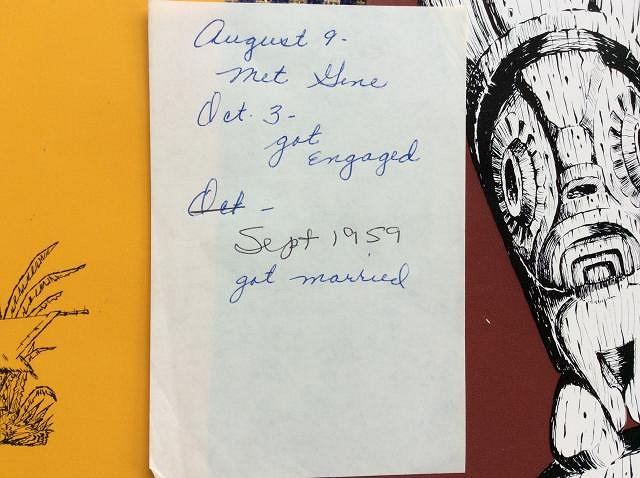 August 9-
Met Gene
Oct. 3-
got
engaged
Oct -
Sept 1959
got married